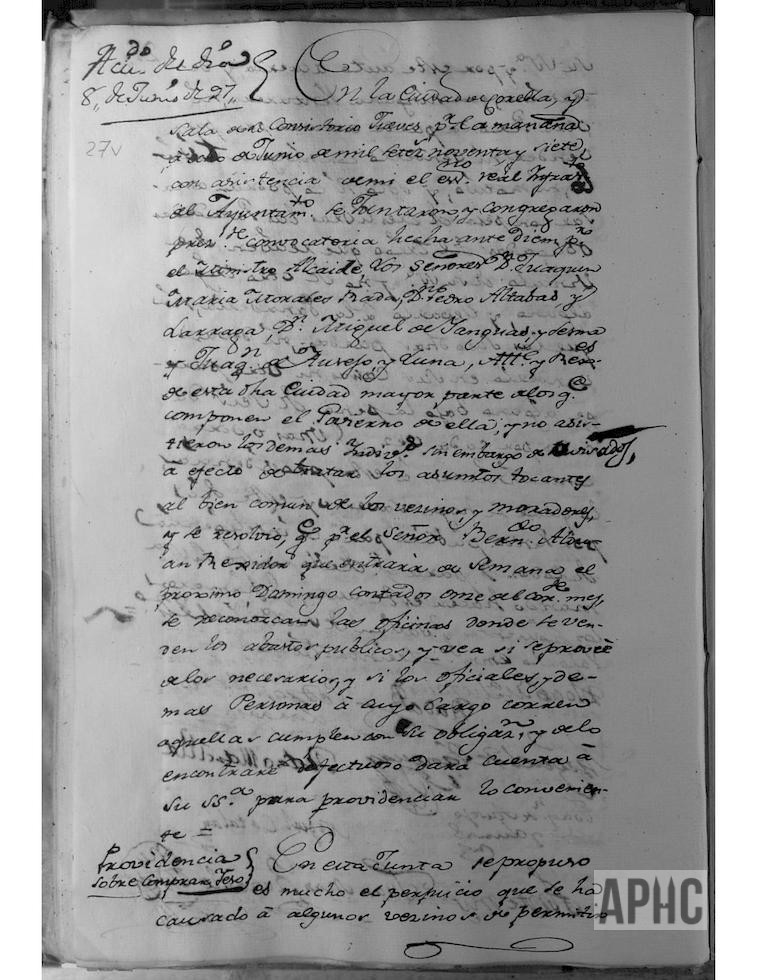 Acu.do del dia
8,, de Junio de 97,,
27v
En la Ciudad de Corella, y
Sala de su Consistorio Jueves p.r la mañana
a ocho de Junio de mil setez.s noventa y siete,
con asistencia de mi el ess.no real Infraes.to
del Ayuntam.to se Juntaron, y congregaron
prev.te convocatoria hecha ante diem p.r
el Ministro Alcaide, los Señores D.n Juaquin
Maria Morales Rada, D.n Pedro Altabas y
Larraga, D.n Miguel de Sanguas, y Lerma
y Juaq.n de Aurejo, y Luna, All.e y Rex.es
de esta dha Ciudad mayor parte de los q.e
componen el Govierno de ella; y no asis-
tieron los demas Indiv.s sin embargo de avisados,
à efecto de tratar los asuntos tocantes
al bien comun de los vecinos, y moradores,
y se resolvio, q.e p.r el Señor Bern.do Alduan
Rexidor que entrará de Semana el
proximo Domingo contados once del cor.te mes,
se reconozcan las oficinas donde se ven-
den los abastos publicos, y vea si se proveé
de los necesarios, y si los oficiales, y de-
mas Personas à cuyo Cargo corren
aquellas cumplen con su obligaz.n, y de lo
encontrare defectuoso dará cuenta à
su SS.a para providenciar lo convenien-
te =
Providencia
sobre Comprar Jeso
En esta Junta se propuso
es mucho el perjuicio que se ha
causado à algunos vecinos de permitir
APHC